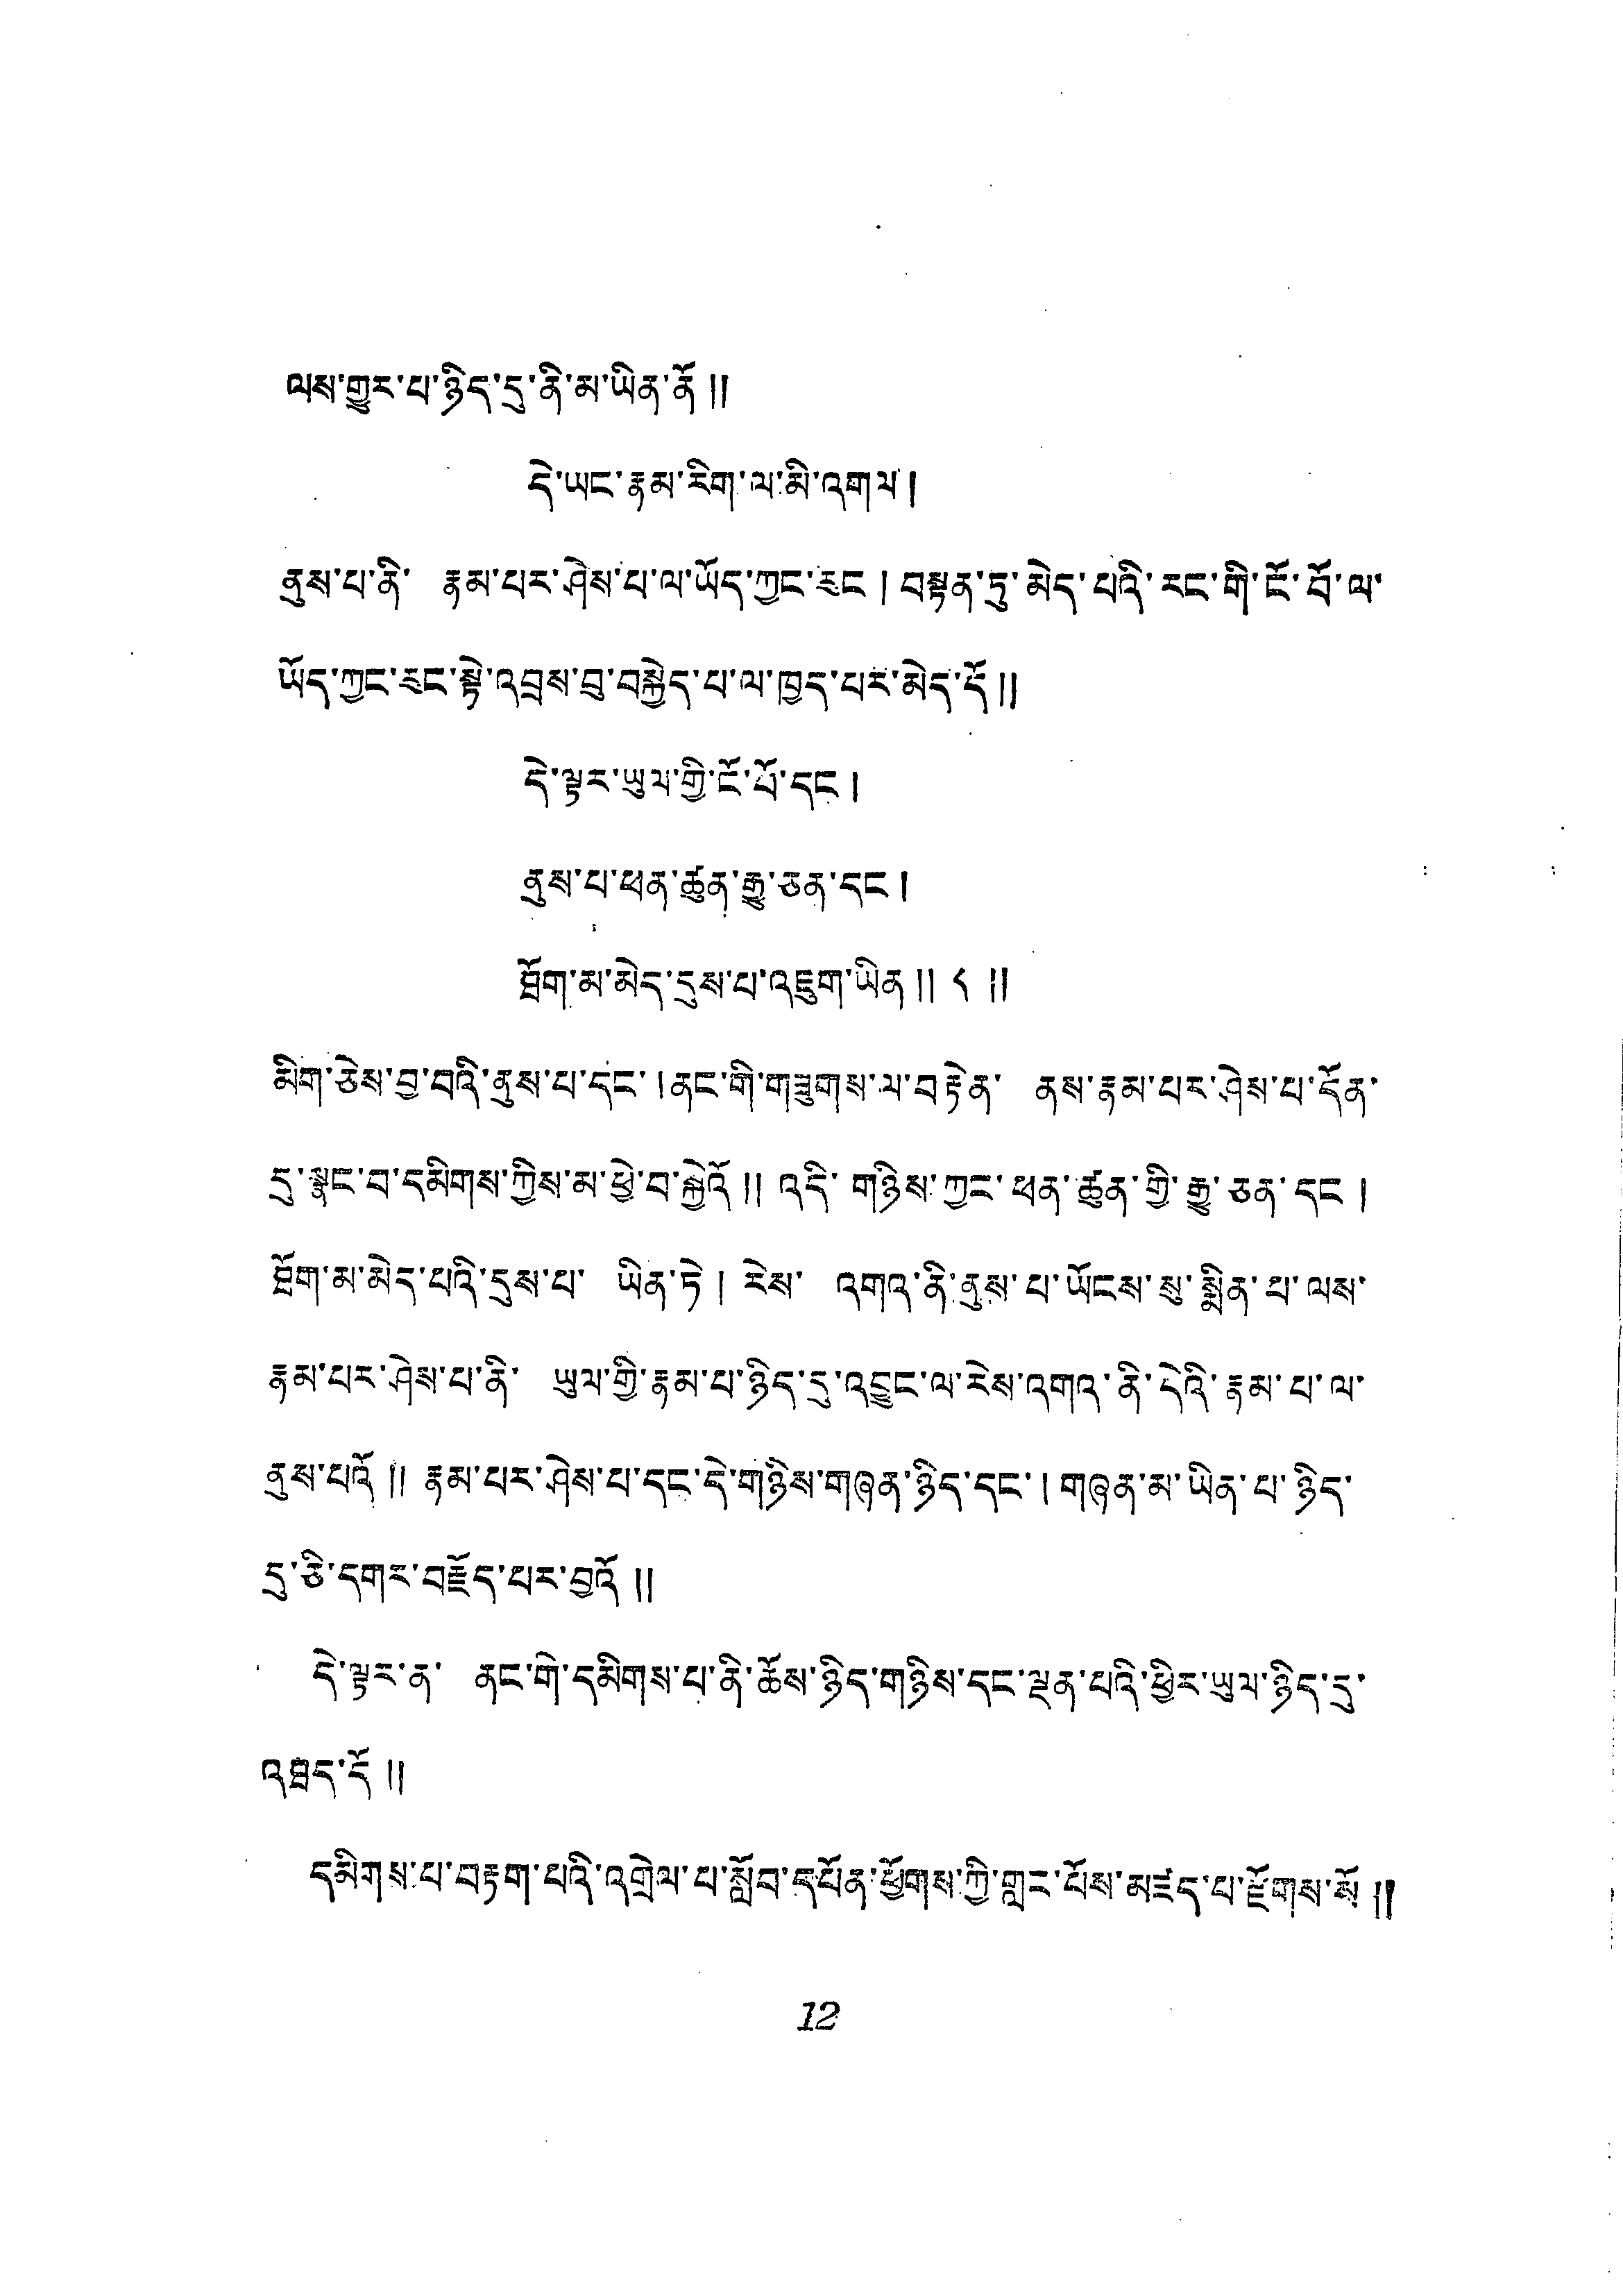 ལས་གྱུར་པ་ཉིད་དུ་ནི་མ་ཡིན་ནོ༎
དེ་ཡང་རྣམ་རིག་ལ་མི་འགལ།
ནུས་པ་ནི་ རྣམ་པར་ཤེས་པ་ལ་ཡོད་ཀྱང་རུང་། བསྟན་ཏུ་མེད་པའི་རང་གི་ངོ་བོ་ལ་
ཡོད་ཀྱང་རུང་སྟེ་འབྲས་བུ་བསྐྱེད་པ་ལ་ཁྱད་པར་མེད་དོ༎
དེ་ལྟར་ཡུལ་གྱི་ངོ་པོ་དང་།
ནུས་པ་ཕན་ཚུན་རྒྱུ་ཅན་དང་།
ཐོག་མ་མེད་དུས་པ་འཇུག་ཡིན༎ ༨ ༎
མིག་ཅེས་བྱ་བའི་ནུས་པ་དང་།ནང་གི་གཟུགས་ལ་བརྟེན་ ནས་རྣམ་པར་ཤེས་པ་དོན་
དུ་སྣང་བ་དམིགས་ཀྱིས་མ་ཕྱེ་བ་སྐྱེའོ༎ འདི་ གཉིས་ཀྱང་ཕན་ཚུན་གྱི་རྒྱུ་ཅན་དང་།
ཐོག་མ་མེད་པའི་དུས་པ་ ཡིན་ཏེ། རེས་ འགའ་ནི་ནུས་པ་ཡོངས་སུ་སྨིན་པ་ལས་
རྣམ་པར་ཤེས་པ་ནི་ ཡུལ་གྱི་རྣམ་པ་ཉིད་དུ་འབྱུང་ལ་རེས་འགའ་ནི་དེའི་རྣམ་པ་ལ་
ནུས་པའོ༎ རྣམ་པར་ཤེས་པ་དང་དེ་གཉིས་གཞན་ཉིད་དང་། གཞན་མ་ཡིན་པ་ཉིད་
དུ་ཅི་དགར་བརྗོད་པར་བྱའོ༎
དེ་ལྟར་ན་ ནང་གི་དམིགས་པ་ནི་ཆོས་ཉིད་གཉིས་དང་ལྡན་པའི་ཕྱིར་ཡུལ་ཉིད་དུ་
འཐད་དོ༎
དམིགས་པ་བརྟག་པའི་འགྲེལ་པ་སློབ་དཔོན་ཕྱོགས་ཀྱི་གླང་པོས་མཛད་པ་རྫོགས་སོ༎
12